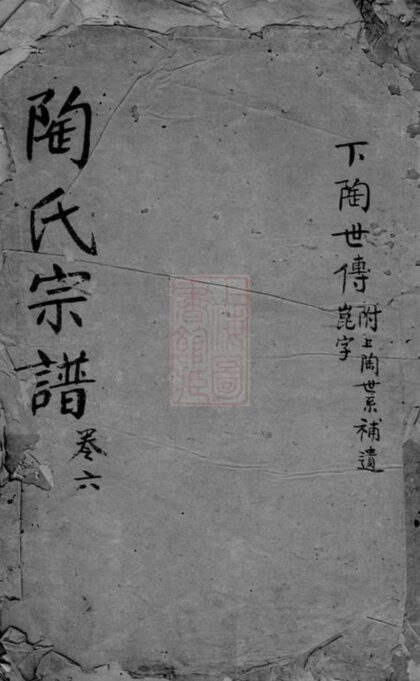 下陶世傳
崑字
附上陶世系補遺
陶氏宗譜
卷六
上海圖書館藏